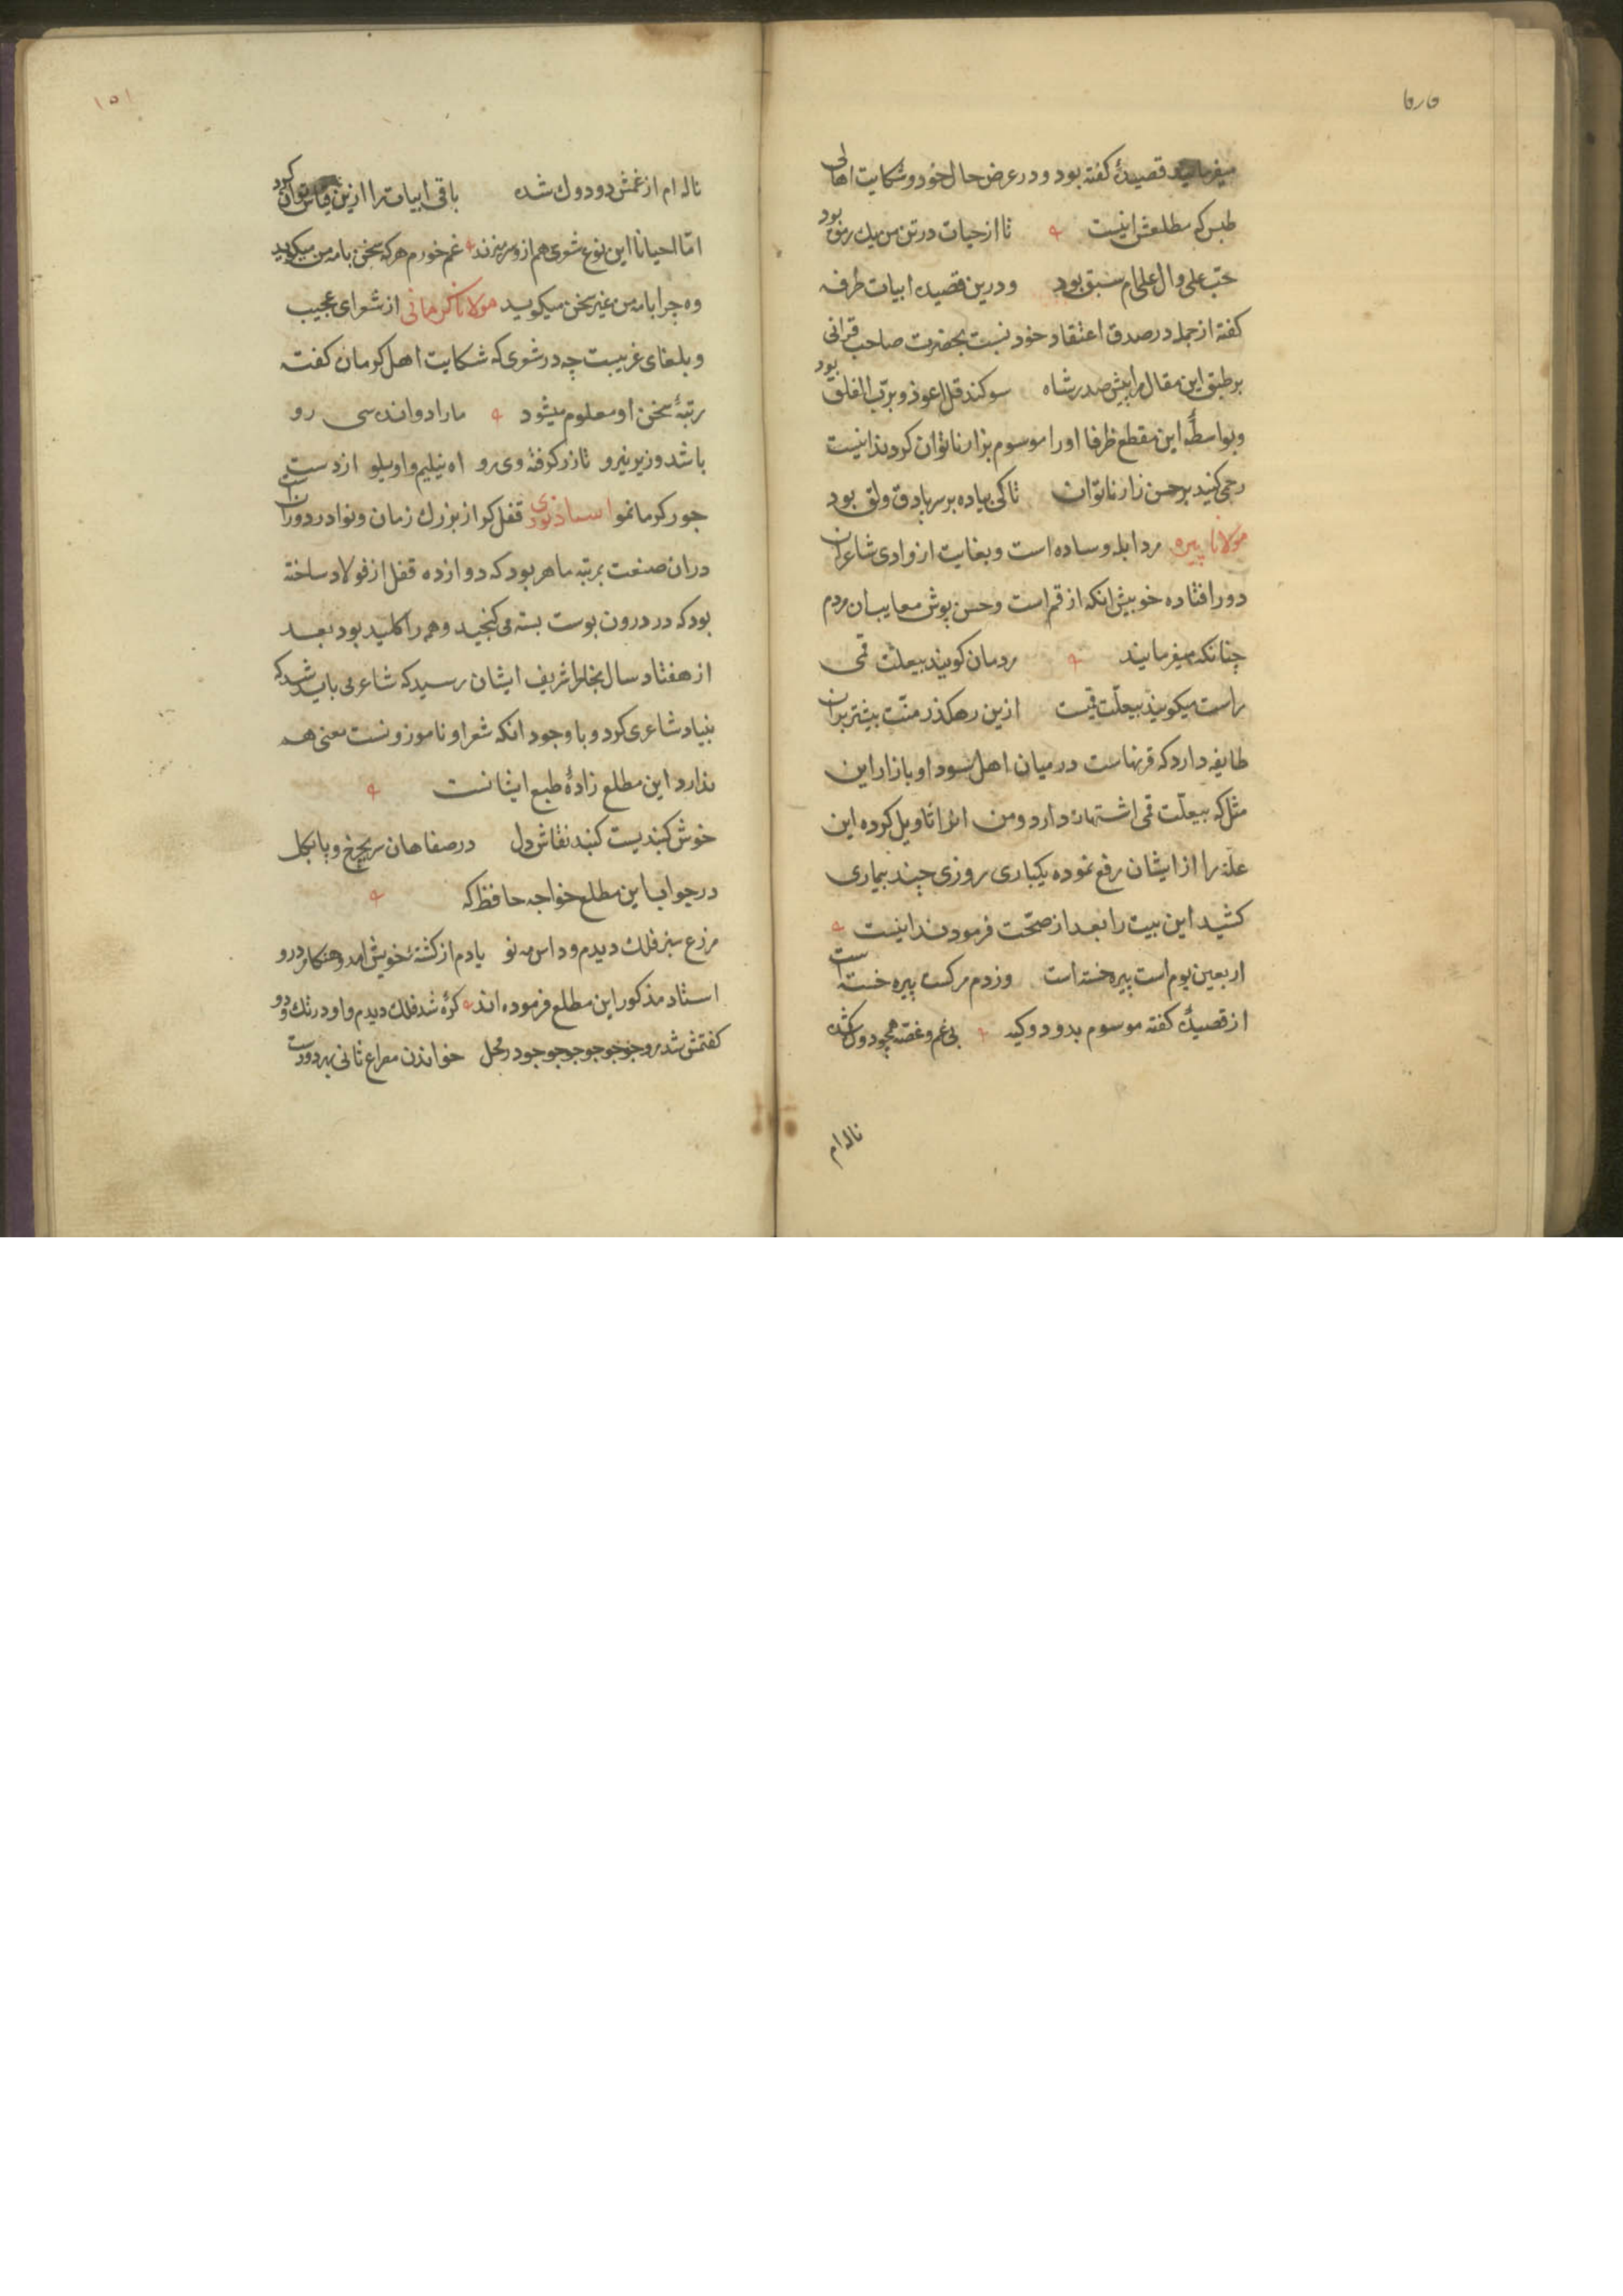 میفرمایند قصیدهٔ کفته بود ودر عرض حال خود و شکایت اهالی
طبس که مطلعش اینست تا از حیات در تن من یک رمق بود
حبّ علی و ال علی ام سبق بود ودرین قصیده ابیات طرفه
کفته از جمله در صدق اعتقاد خود نسبت بحضرت صاحب قرانی
بر طبق این مقال مرا پیش صدر شاه سوکند قل اعوذ و بربّ الفلق بود
وبواسطهٔ این مقطع ظرفا او را موسوم بزار ناتوان کردند اینست
رحمی کنید بر حسن زار ناتوان تا کی پیاده بر سر پا دق ولق بود
مولانا پیره مرد ابله و ساده است و بغایت از وادی شاعری
دور افتاده خوبیش انکه از قم است و حسن پوش معایب ان مردم
چنانکه میفرمایند مردمان کویند بیعلت قمی
راست میکویند بیعلّت قمیست ازین رهکذر منّت بیشتر بر ان
طایفه دارد که قرنهاست در میان اهل سودا و بازار این
مثل که بیعلّت قمی اشتهار دارد ومن انرا تاویل کرده این
علة را از ایشان رفع نموده یکباری روزی چند بیماری
کشید این بیت را بعد از صحّت فرمودند اینست
اربعین یوم است پیره خسته است وز دم مرکت پیره خسته است
از قصیدهٔ کفته موسوم بدود وکید بی غم و غصه همچو دوک شده
ناله ام
۱۵۱
ناله ام از غمش دودوک شده باقی ابیات را ازین قیاس توان کرد
امّا احیانا این نوع شعری هم ازو سر میزند غم خورم هر که سخن با مه من میکوید
وه چرا با مه من غیر سخن میکوید مولانا کرمانی از شعرای عجیب
و بلغای غریبست چه در شعری که شکایت اهل کرمان کفته
رتبهٔ سخن او معلوم میشود مارا دواندسی رو
باشد وزیر نیرو تا زر کرفته وی رو اه نیلیم واویلو از دست
جور کرمانمو استاد نوری قفل کر از بزرک زمان و نوادر دوران است
دران صنعت بمرتبه ماهر بود که دوازده قفل از فولاد ساخته
بود که در درون پوست بسته می کنجید وهمه را کلید بود بعد
از هفتاد سال بخاطر شریف ایشان رسید که شاعر می باید شد که
بنیاد شاعری کرد و با وجود انکه شعر او ناموزونست معنی هم
ندارد این مطلع زادهٔ طبع ایشانست
خوش کنبدیست کنبد نقاش دل در صفاهان سر بچرخ و پا بکل
در جواب این مطلع خواجه حافظ که
مزرع سبز فلک دیدم و داس مه نو یادم از کشتهٔ خویش امد وهنکام درو
استاد مذکور این مطلع فرموده اند کرّه شد فلک دیدم واو در تک و دو
کفتمش شد بروجوجوجوجوجوجود رمحل خواندن مصراع ثانی بهر دو دست